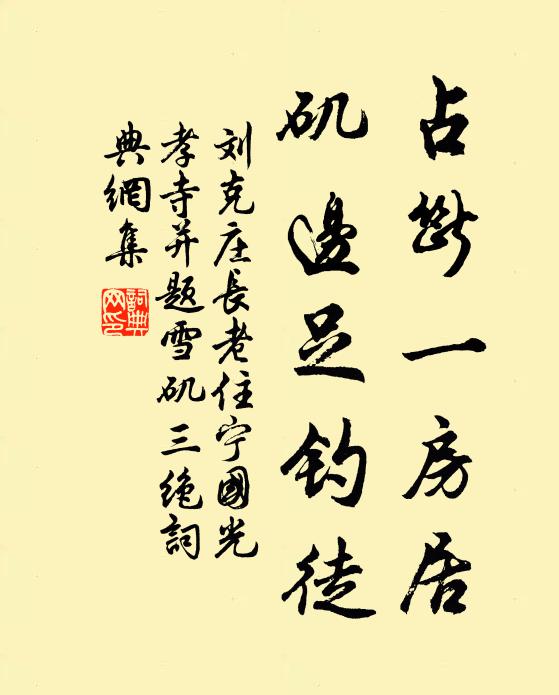 占斷一房居
矶邊足钓徒
刘克庄長老住宁國光
孝寺并题雪矶三绝詞
典網集
詞典
网印